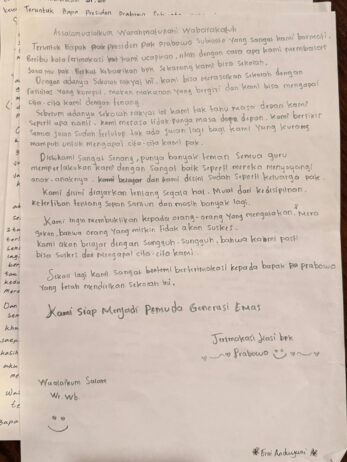 Teruntuk Bapa Presiden Prabowo
Assalamualaikum Warahmatullahi Wabarakatuh
Teruntuk Bapak Presiden Pak Prabowo Subianto yang sangat kami hormati.
Beribu kata Terimakasi kami ucapkan, ntah dengan cara apa kami membalas
Jasa mu pak. Berkat bapak Sekarang kami bisa Sekolah.
Dengan adanya Sekolah rakyat ini, kami bisa merasakan Sekolah dengan
Fasilitas Yang kumplit, makan makanan Yang bergizi dan kami bisa mengapai
cita-cita kami dengan tenang.
Sebelum adanya Sekolah rakyat ini kami tak tahu masa depan kami
Seperti apa nanti. kami merasa tidak punya masa depan, kami berfikir
Semua jalan Sudah tertutup tak ada jalan lagi bagi kami Yang kurang
mampu untuk mengapai cita-cita kami pak.
Disini kami Sangat Senang, punya banyak teman Semua guru
memperlakukan kami dengan Sangat baik Seperti mereka menyayangi
anak-anaknya. kami belajar dan kami disini Sudah Seperti keluarga pak.
Kami disini diajarkan tentang Segala hal. Mulai dari kedisiplinan,
ketertiban tentang Sopan Santun dan masih banyak lagi.
Kami ingin membuktikan kepada orang-orang Yang mengatakan, Mere
gekan bahwa orang Yang miskin Tidak akan Sukses.
Kami akan belajar dengan Sungguh-Sungguh, bahwa kami pasti
bisa Sukses dan mengapai cita-cita kami.
Sekali lagi kami Sangat berterimakasi kepada bapak prabowo
Yang telah mendirikan Sekolah ini.
Kami Siap Menjadi Pemuda Generasi Emas
Terimakasi
Prabowo
Waalaikum Salam
Wr. Wb.